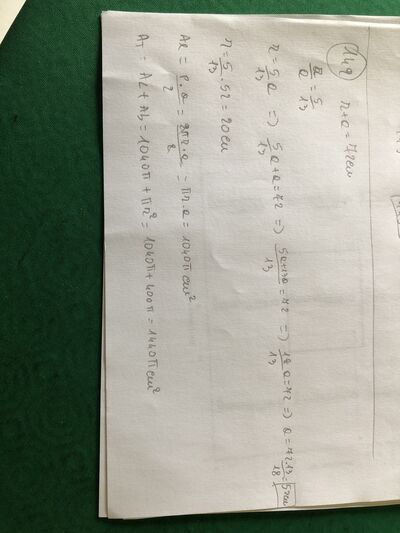 149 r+a=72cm
r/a = 5/13
r = 5/13 a => 5/13 a + a = 72 => 5a+13a/13 = 72 => 18/13 a = 72 => a = 72·13/18 = 52cm
r = 5/13 · 52 = 20cm
Al = P·a/2 = 2πr·a/2 = πr·a = 1040π cm²
AT = AL + Ab = 1040π + πr² = 1040π + 400π = 1440π cm²